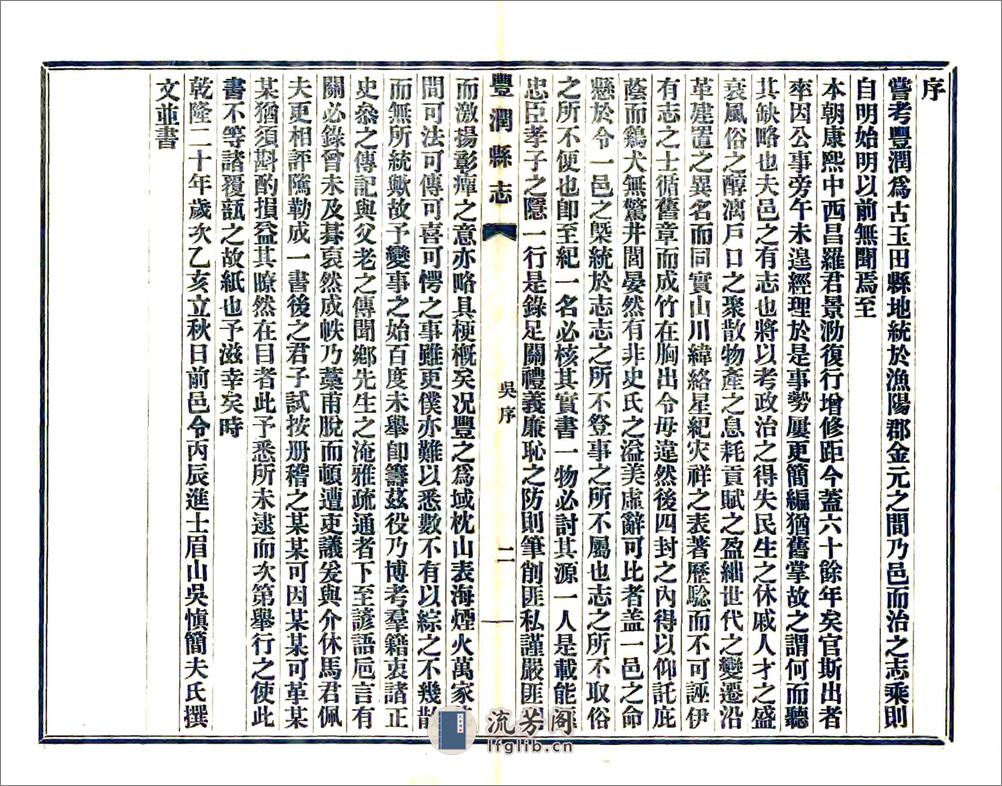 序
嘗考豐潤爲古玉田縣地統於漁陽郡金元之間乃邑而治之志乘則
自明始明以前無聞焉至
本朝康熙中西昌羅君景泐復行增修距今蓋六十餘年矣官斯出者
率因公事旁午未遑經理於是事勢屢更簡編猶舊掌故之謂何而聽
其缺略也夫邑之有志也將以考政治之得失民生之休戚人才之盛
衰風俗之醇漓戸口之聚散物產之息耗貢賦之盈絀世代之變遷沿
革建置之異名而同實山川緯絡星紀灾祥之表著歷騐而不可誣伊
有志之士循舊章而成竹在胸出令毋違然後四封之內得以仰託庇
蔭而鷄犬無驚井閭晏然有非史氏之溢美虛辭可比者盖一邑之命
懸於令一邑之槩統於志志之所不登事之所不屬也志之所不取俗
之所不便也卽至紀一名必核其實書一物必討其源一人是載能
忠臣孝子之隱一行是錄足關禮義廉恥之防則筆削匪私謹嚴匪
豐潤縣志
吳序
二
而激揚彰癉之意亦略具梗槪矣况豐之爲域枕山表海煙火萬家
問可法可傳可喜可愕之事雖更僕亦難以悉數不有以綜之不幾散
而無所統歟故予變事之始百度未舉卽籌茲役乃博考羣籍衷諸正
史叅之傳記與父老之傳聞鄉先生之淹雅疏通者下至諺語巵言有
關必錄曾未及朞裒然成帙乃藁甫脫而頓遭吏議爰與介休馬君佩
夫更相評隲勒成一書後之君子試按册稽之某某可因某某可革某
某猶須斟酌損益其瞭然在目者此予悉所未逮而次第舉行之使此
書不等諸覆瓿之故紙也予滋幸矣時
乾隆二十年歲次乙亥立秋日前邑令丙辰進士眉山吳愼簡夫氏撰
文並書
流芳阁
lfglib.cn